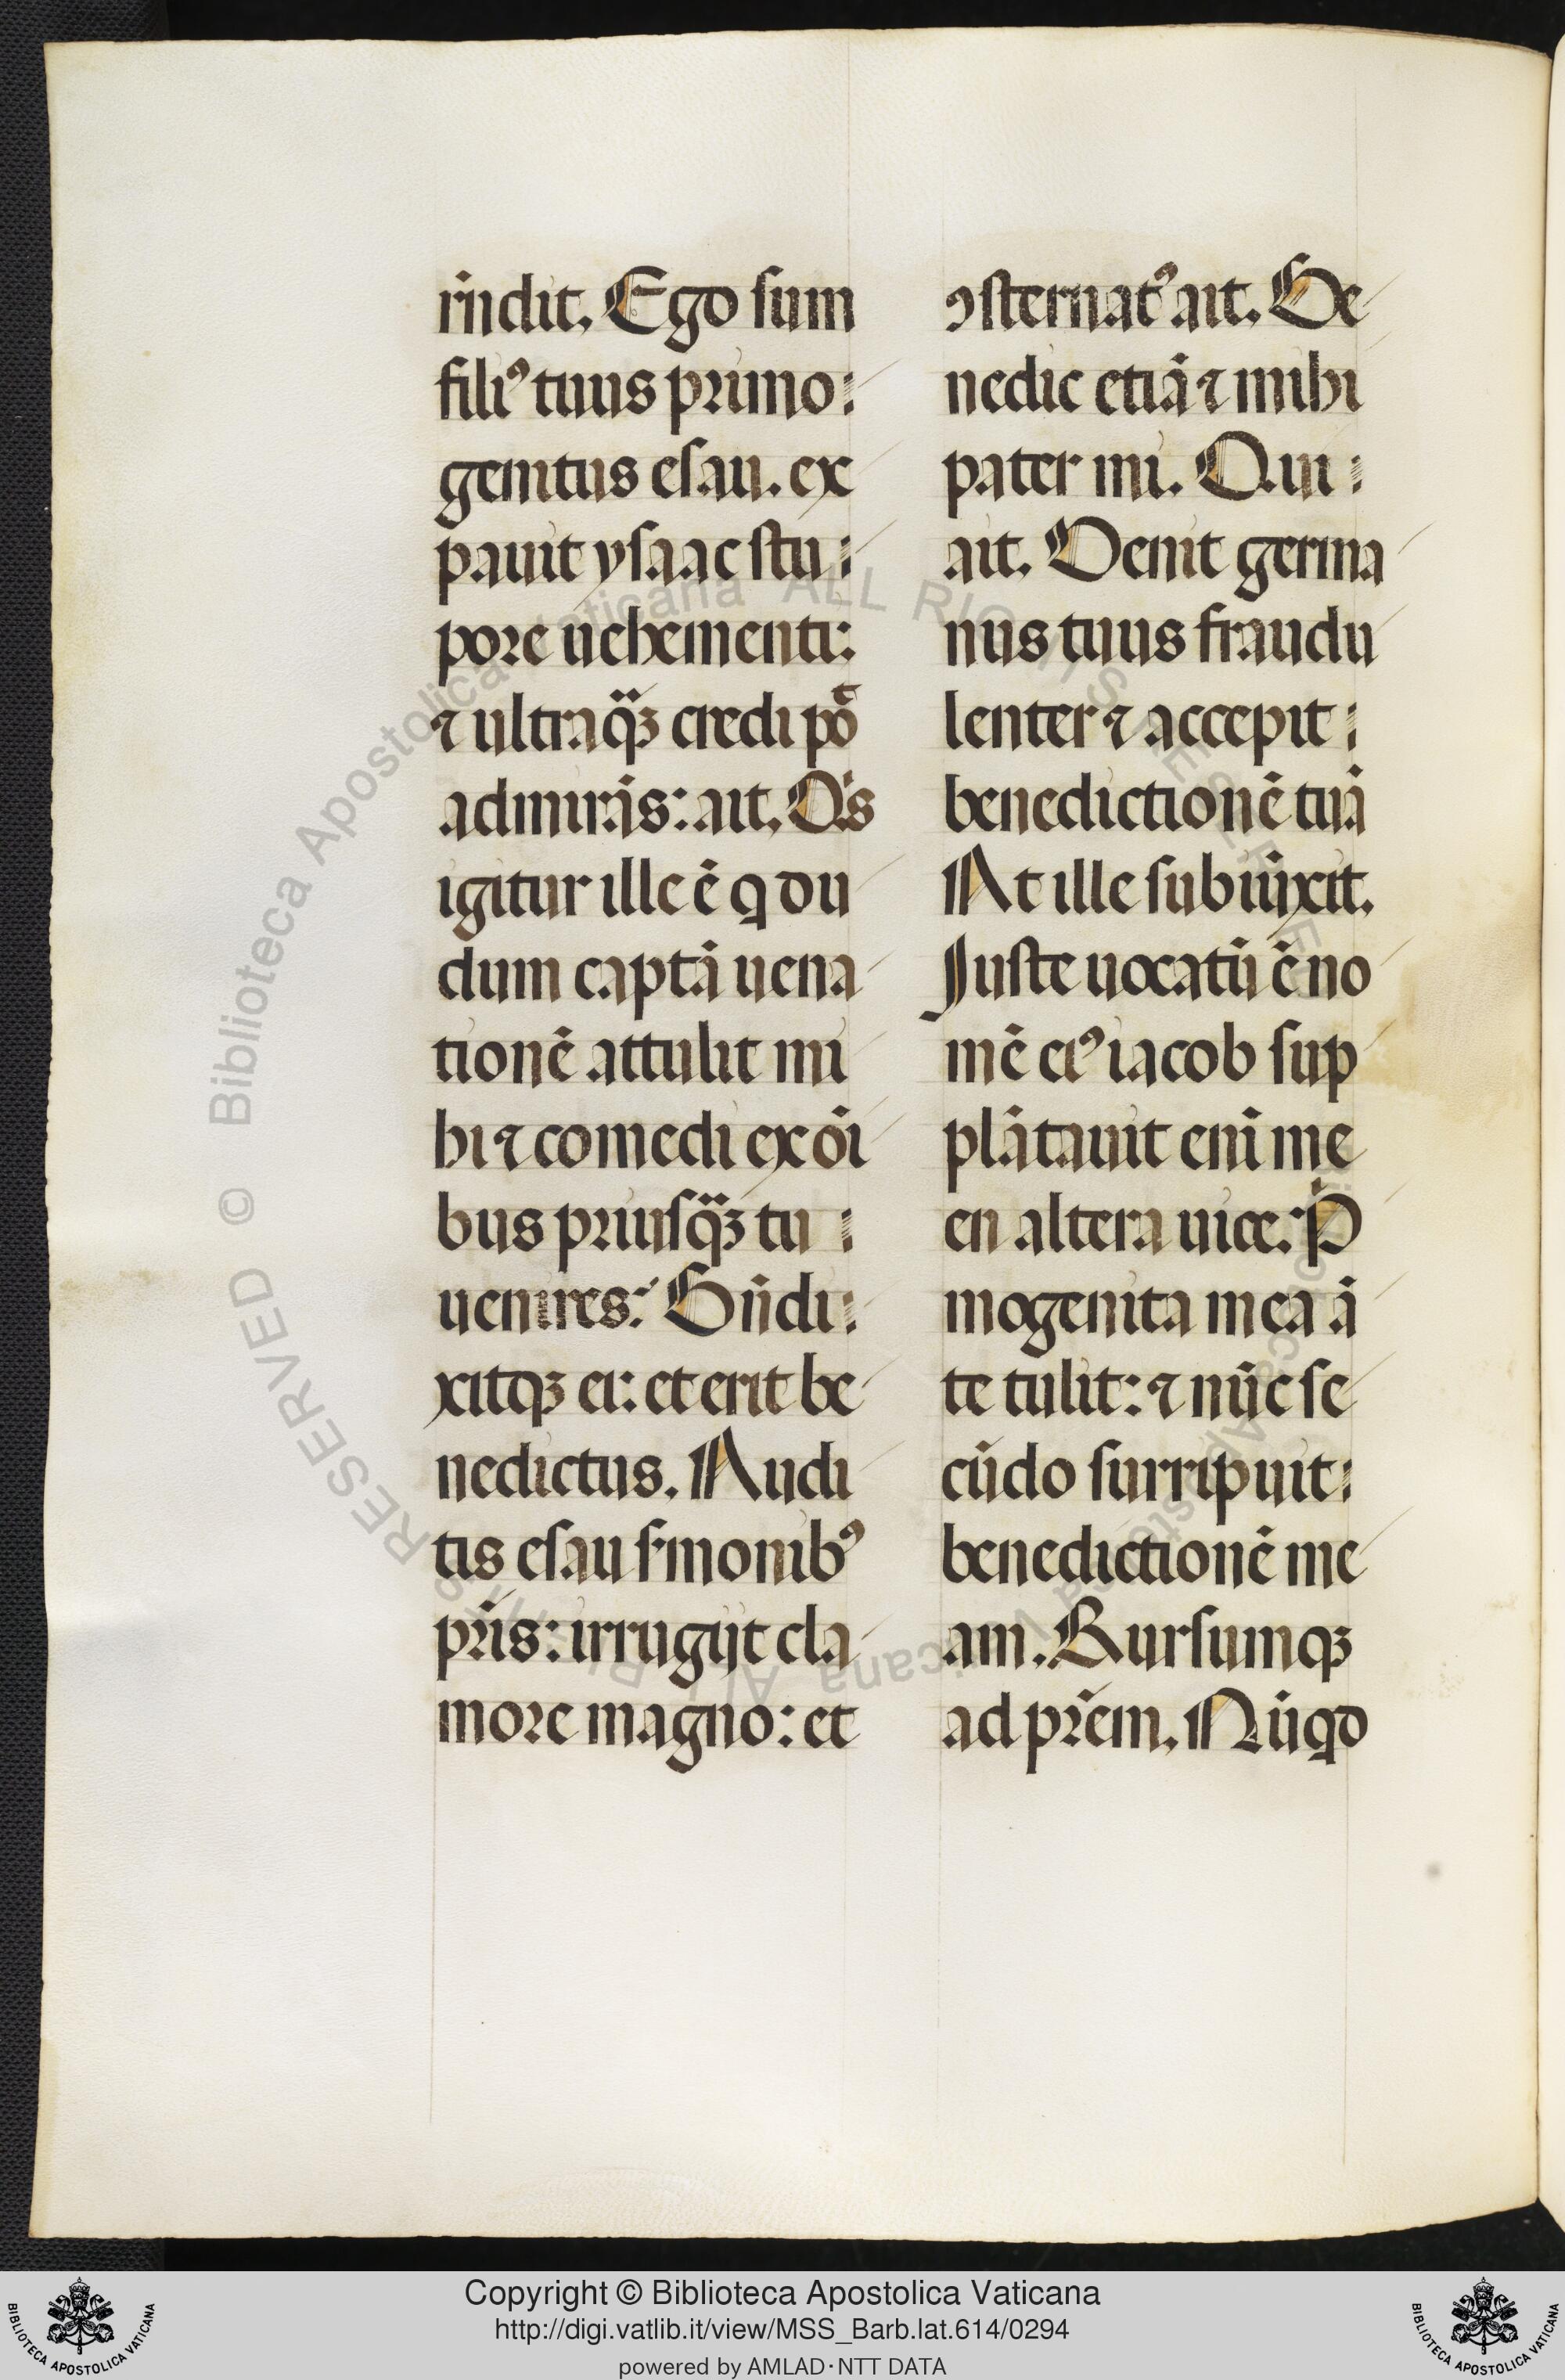 rñdit. Ego sum
filiꝰ tuus primo:
genitus esau. ex
pauit ysaac stu:
pore uehementi:
⁊ ultraq̃ꝫ credi põt
admirãs: ait. Q's
igitur ille ẽ q du
dum captã uena
tionẽ attulit mi
hi ⁊ comedi ex oĩ
bus priusq̃ꝫ tu :
uenires: Bñdi:
xitqꝫ ei: et erit be
nedictus. Audi
tis esau s̃monibꝰ
pr̃is: irrugijt cla
more magno: et
ꝯsternatꝰ ait. Be
nedic etiã ⁊ mihi
pater mi. Qui :
ait. Uenit germa
nus tuus fraudu
lenter ⁊ accepit :
benedictionẽ tuã
At ille subiũxit.
Juste uocatũ ẽ no
mẽ eiꝰ iacob sup
plãtauit enĩ me
en altera uice: P'
mogenita mea ã
te tulit: ⁊ nũc se
cũdo surripuit:
benedictionẽ me
am. Rursumqꝫ
ad pr̃em. Nũqd
© Biblioteca Apostolica Vaticana ALL RIGHTS RESERVED
Copyright © Biblioteca Apostolica Vaticana
http://digi.vatlib.it/view/MSS_Barb.lat.614/0294
powered by AMLAD·NTT DATA
BIBLIOTECA APOSTOLICA VATICANA
BIBLIOTECA APOSTOLICA VATICANA